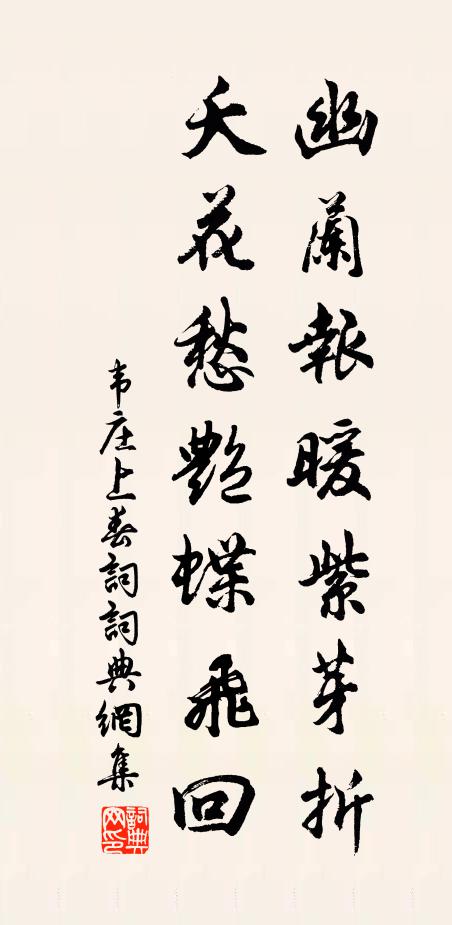 幽蘭報暖紫芽折
夭花愁艷蝶飛回
韦庄上春詞詞典網集
詞典網印